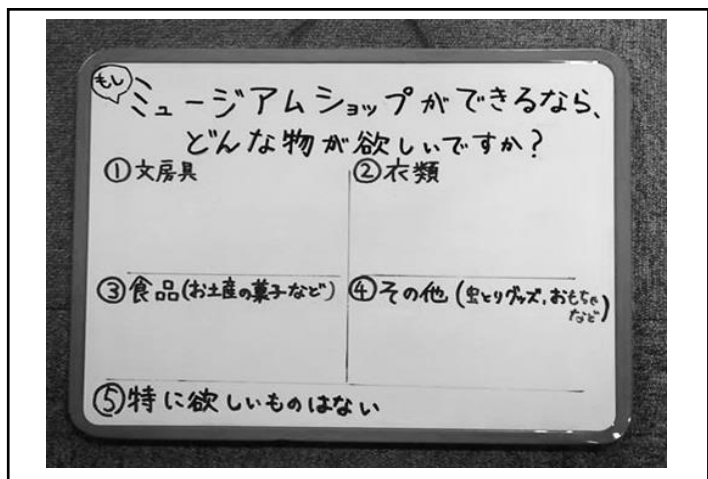 もし
ミュージアムショップができるなら、
どんな物が欲しいですか?
①文房具
②衣類
③食品(お土産の菓子など)
④その他(虫とりグッズ、おもちゃ
など)
⑤特に欲しいものはない